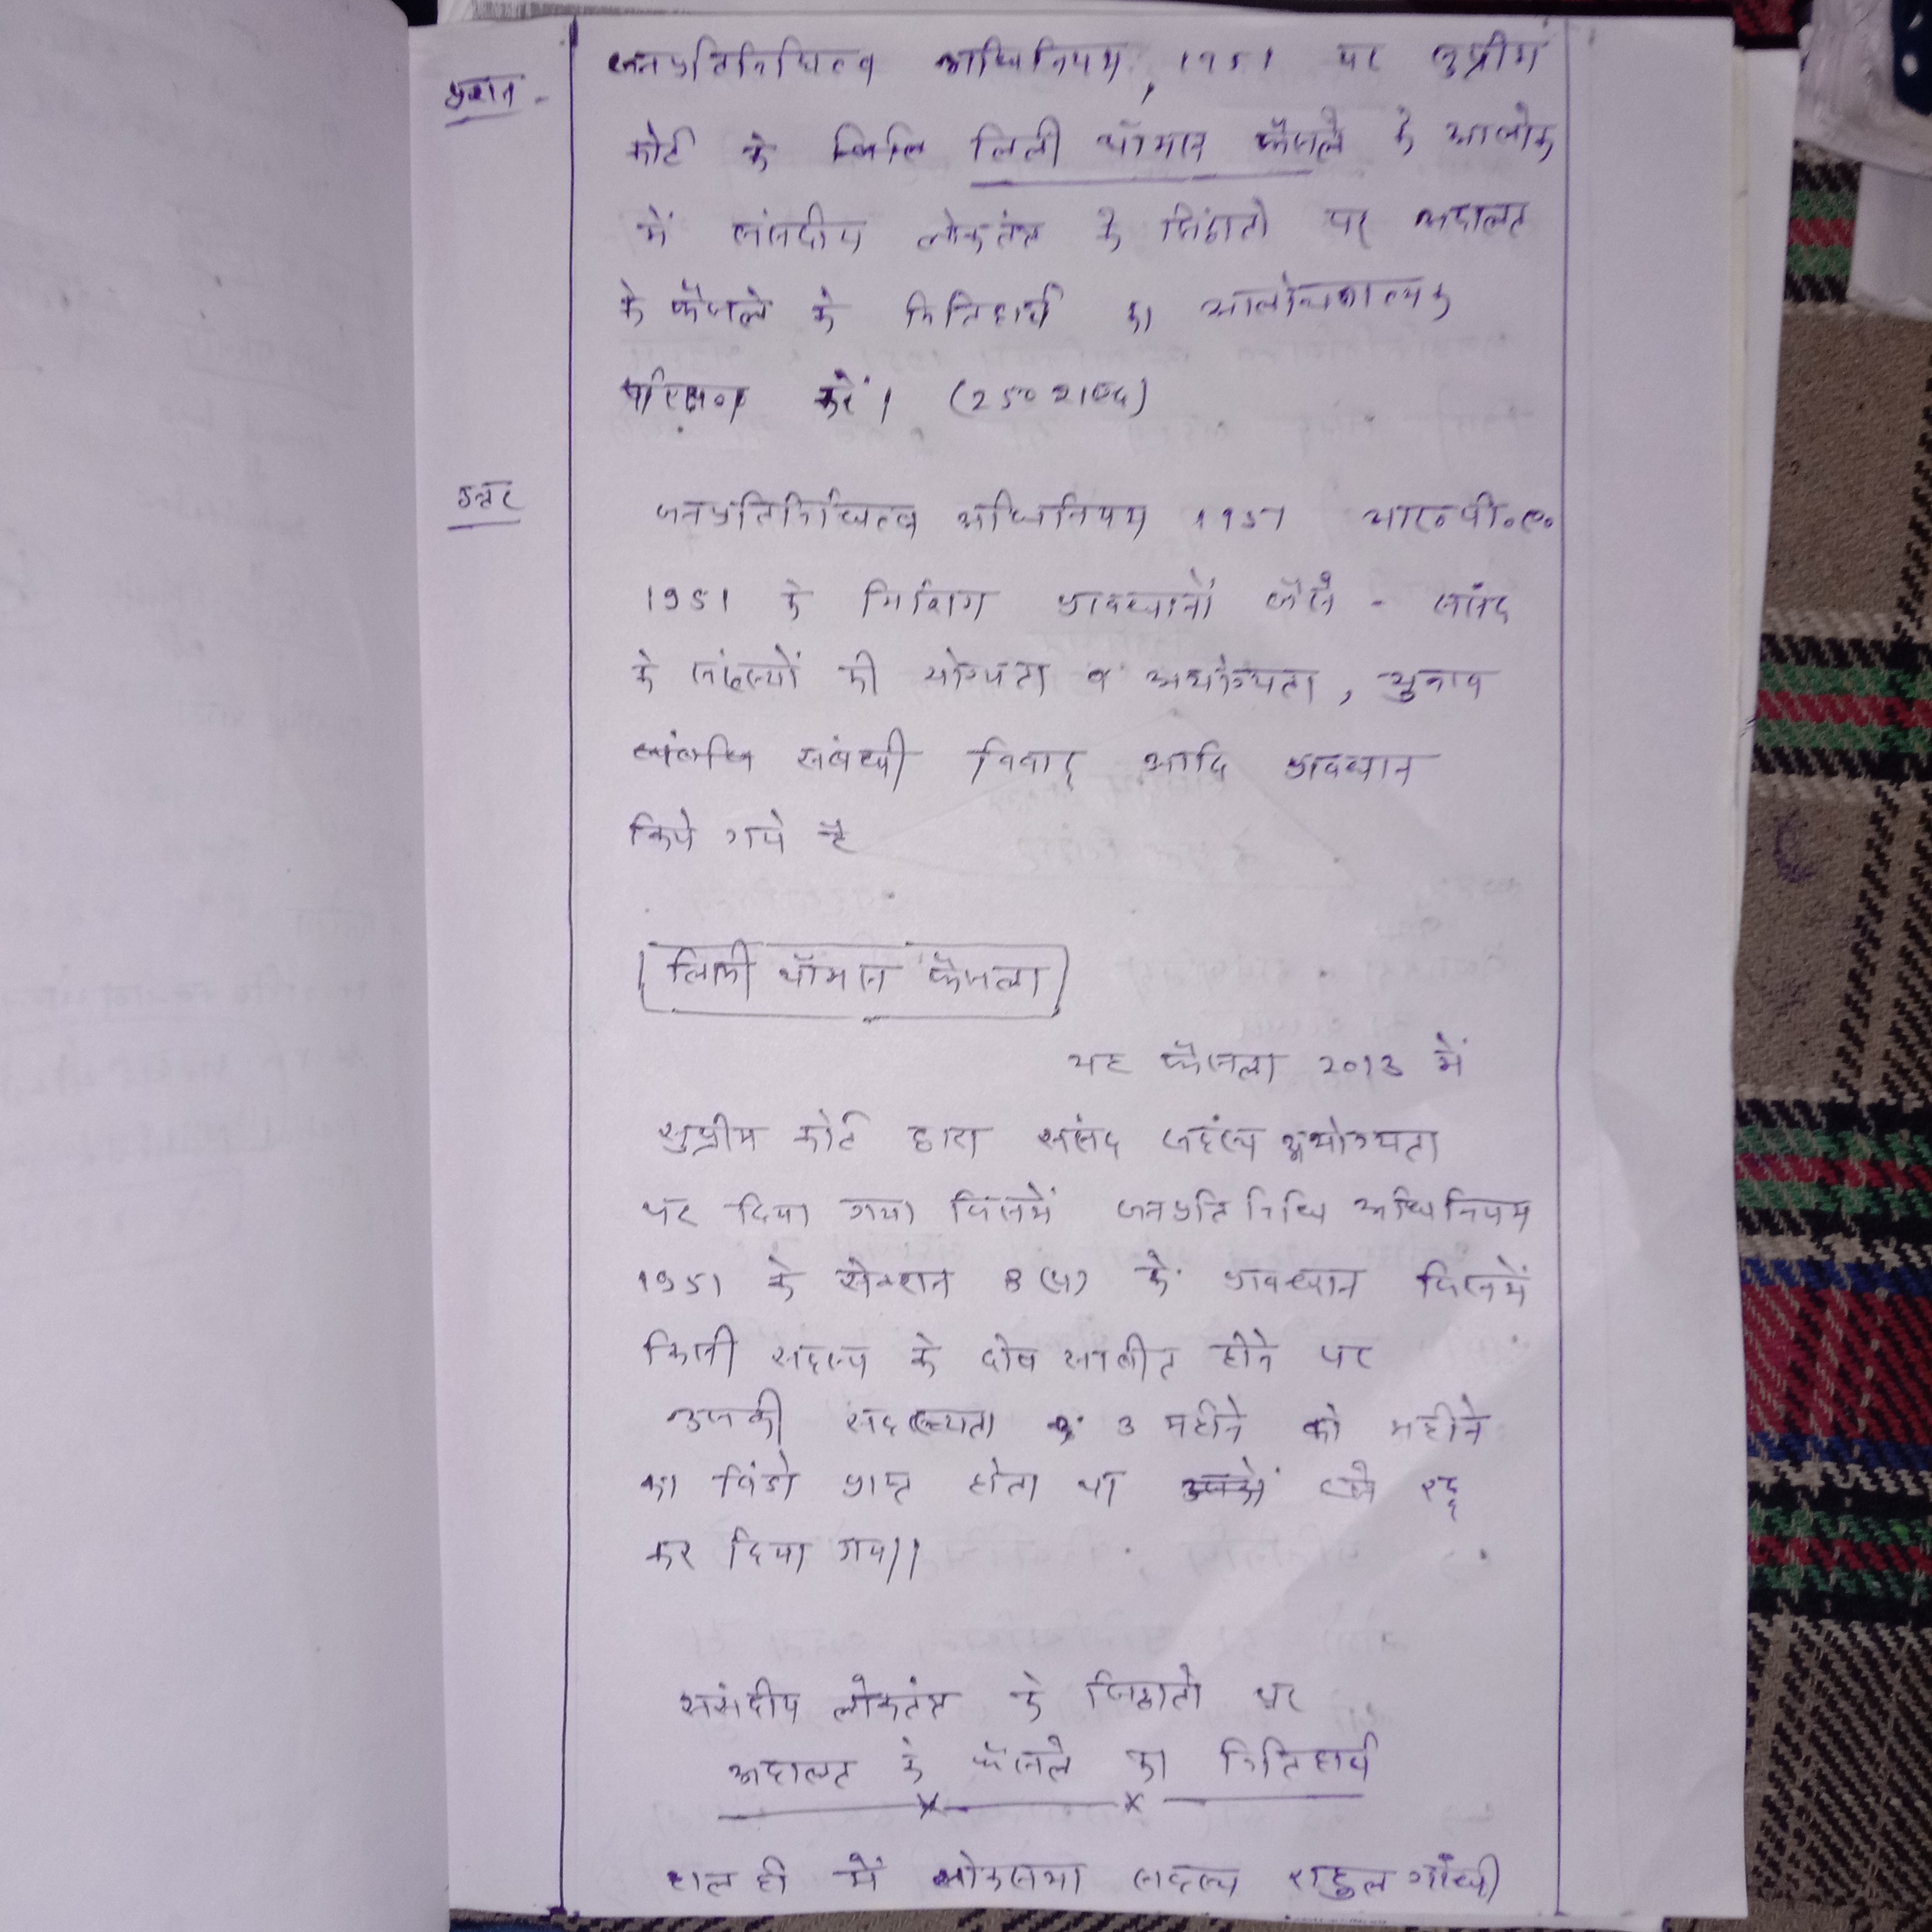 प्रश्न - जनप्रतिनिधित्व अधिनियम, 1951 पर सुप्रीम
कोर्ट के लिली थॉमस फैसले के आलोक
में संसदीय लोकतंत्र के सिद्धांतो पर अदालत
के फैसले के निहितार्थ का आलोचनात्मक
परिक्षण करें। (250 शब्द)
उत्तर जनप्रतिनिधित्व अधिनियम 1951 आर०पी०ए०
1951 के विभिन्न प्रावधानों जैसे - संसद
के सदस्यों की योग्यता व अयोग्यता, चुनाव
संबंधी विवाद आदि प्रावधान
किये गये है
लिली थॉमस फैसला
यह फैसला 2013 में
सुप्रीम कोर्ट द्वारा संसद सदस्य अयोग्यता
पर दिया गया जिसमें जनप्रतिनिधि अधिनियम
1951 के सेक्शन 8(4) के प्रावधान जिसमें
किसी सदस्य के दोष साबीत होने पर
उसकी सदस्यता 3 महीने को महीने
का विंडो प्राप्त होता था उसे रद्द
कर दिया गया।
संसदीय लोकतंत्र के सिद्धातो पर
अदालत के फैसले का निहितार्थ
हाल ही में लोकसभा सदस्य राहुल गाँधी